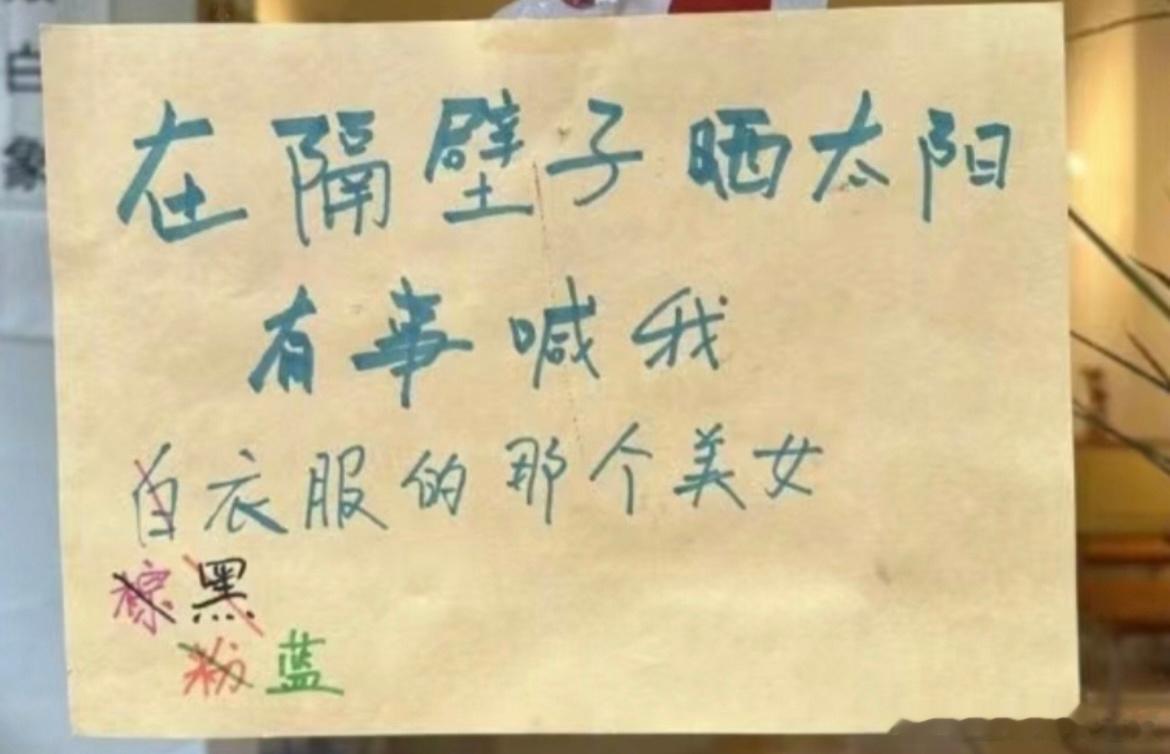 在隔壁子晒太阳
有事喊我
白衣服的那个美女
棕黑
粉蓝
白象